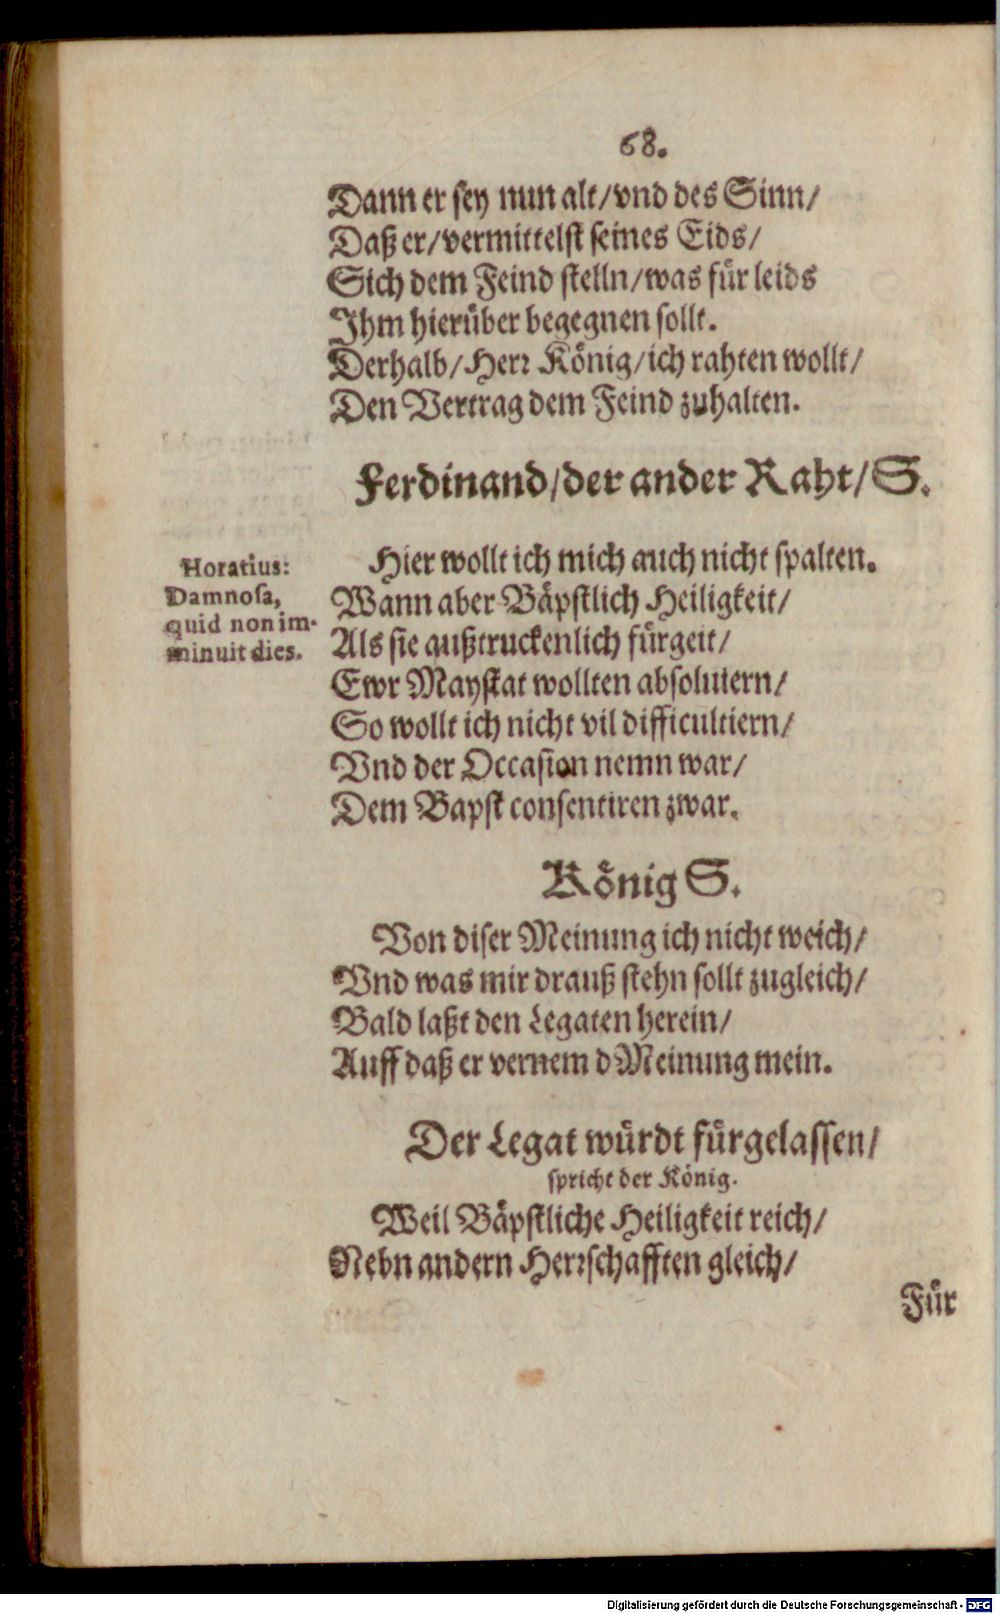 68.
Dann er sey nun alt/vnd des Sinn/
Daß er/vermittelst seines Eids/
Sich dem Feind stelln/was für leids
Ihm hierüber begegnen sollt.
Derhalb/Herr König/ich rahten wollt/
Den Vertrag dem Feind zuhalten.
Ferdinand/der ander Raht/S.
Hier wollt ich mich auch nicht spalten.
Horatius:
Damnosa,
quid non im-
minuit dies.
Wann aber Bäpstlich Heiligkeit/
Als sie außtruckenlich fürgeit/
Ewr Maystat wollten absoluiern/
So wollt ich nicht vil difficultiern/
Vnd der Occasion nemn war/
Dem Bapst consentiren zwar.
König S.
Von diser Meinung ich nicht weich/
Vnd was mir drauß stehn sollt zugleich/
Bald laßt den Legaten herein/
Auff daß er vernem d Meinung mein.
Der Legat würdt fürgelassen/
spricht der König.
Weil Bäpstliche Heiligkeit reich/
Nebn andern Herrschafften gleich/
Für
Digitalisierung gefördert durch die Deutsche Forschungsgemeinschaft - DFG